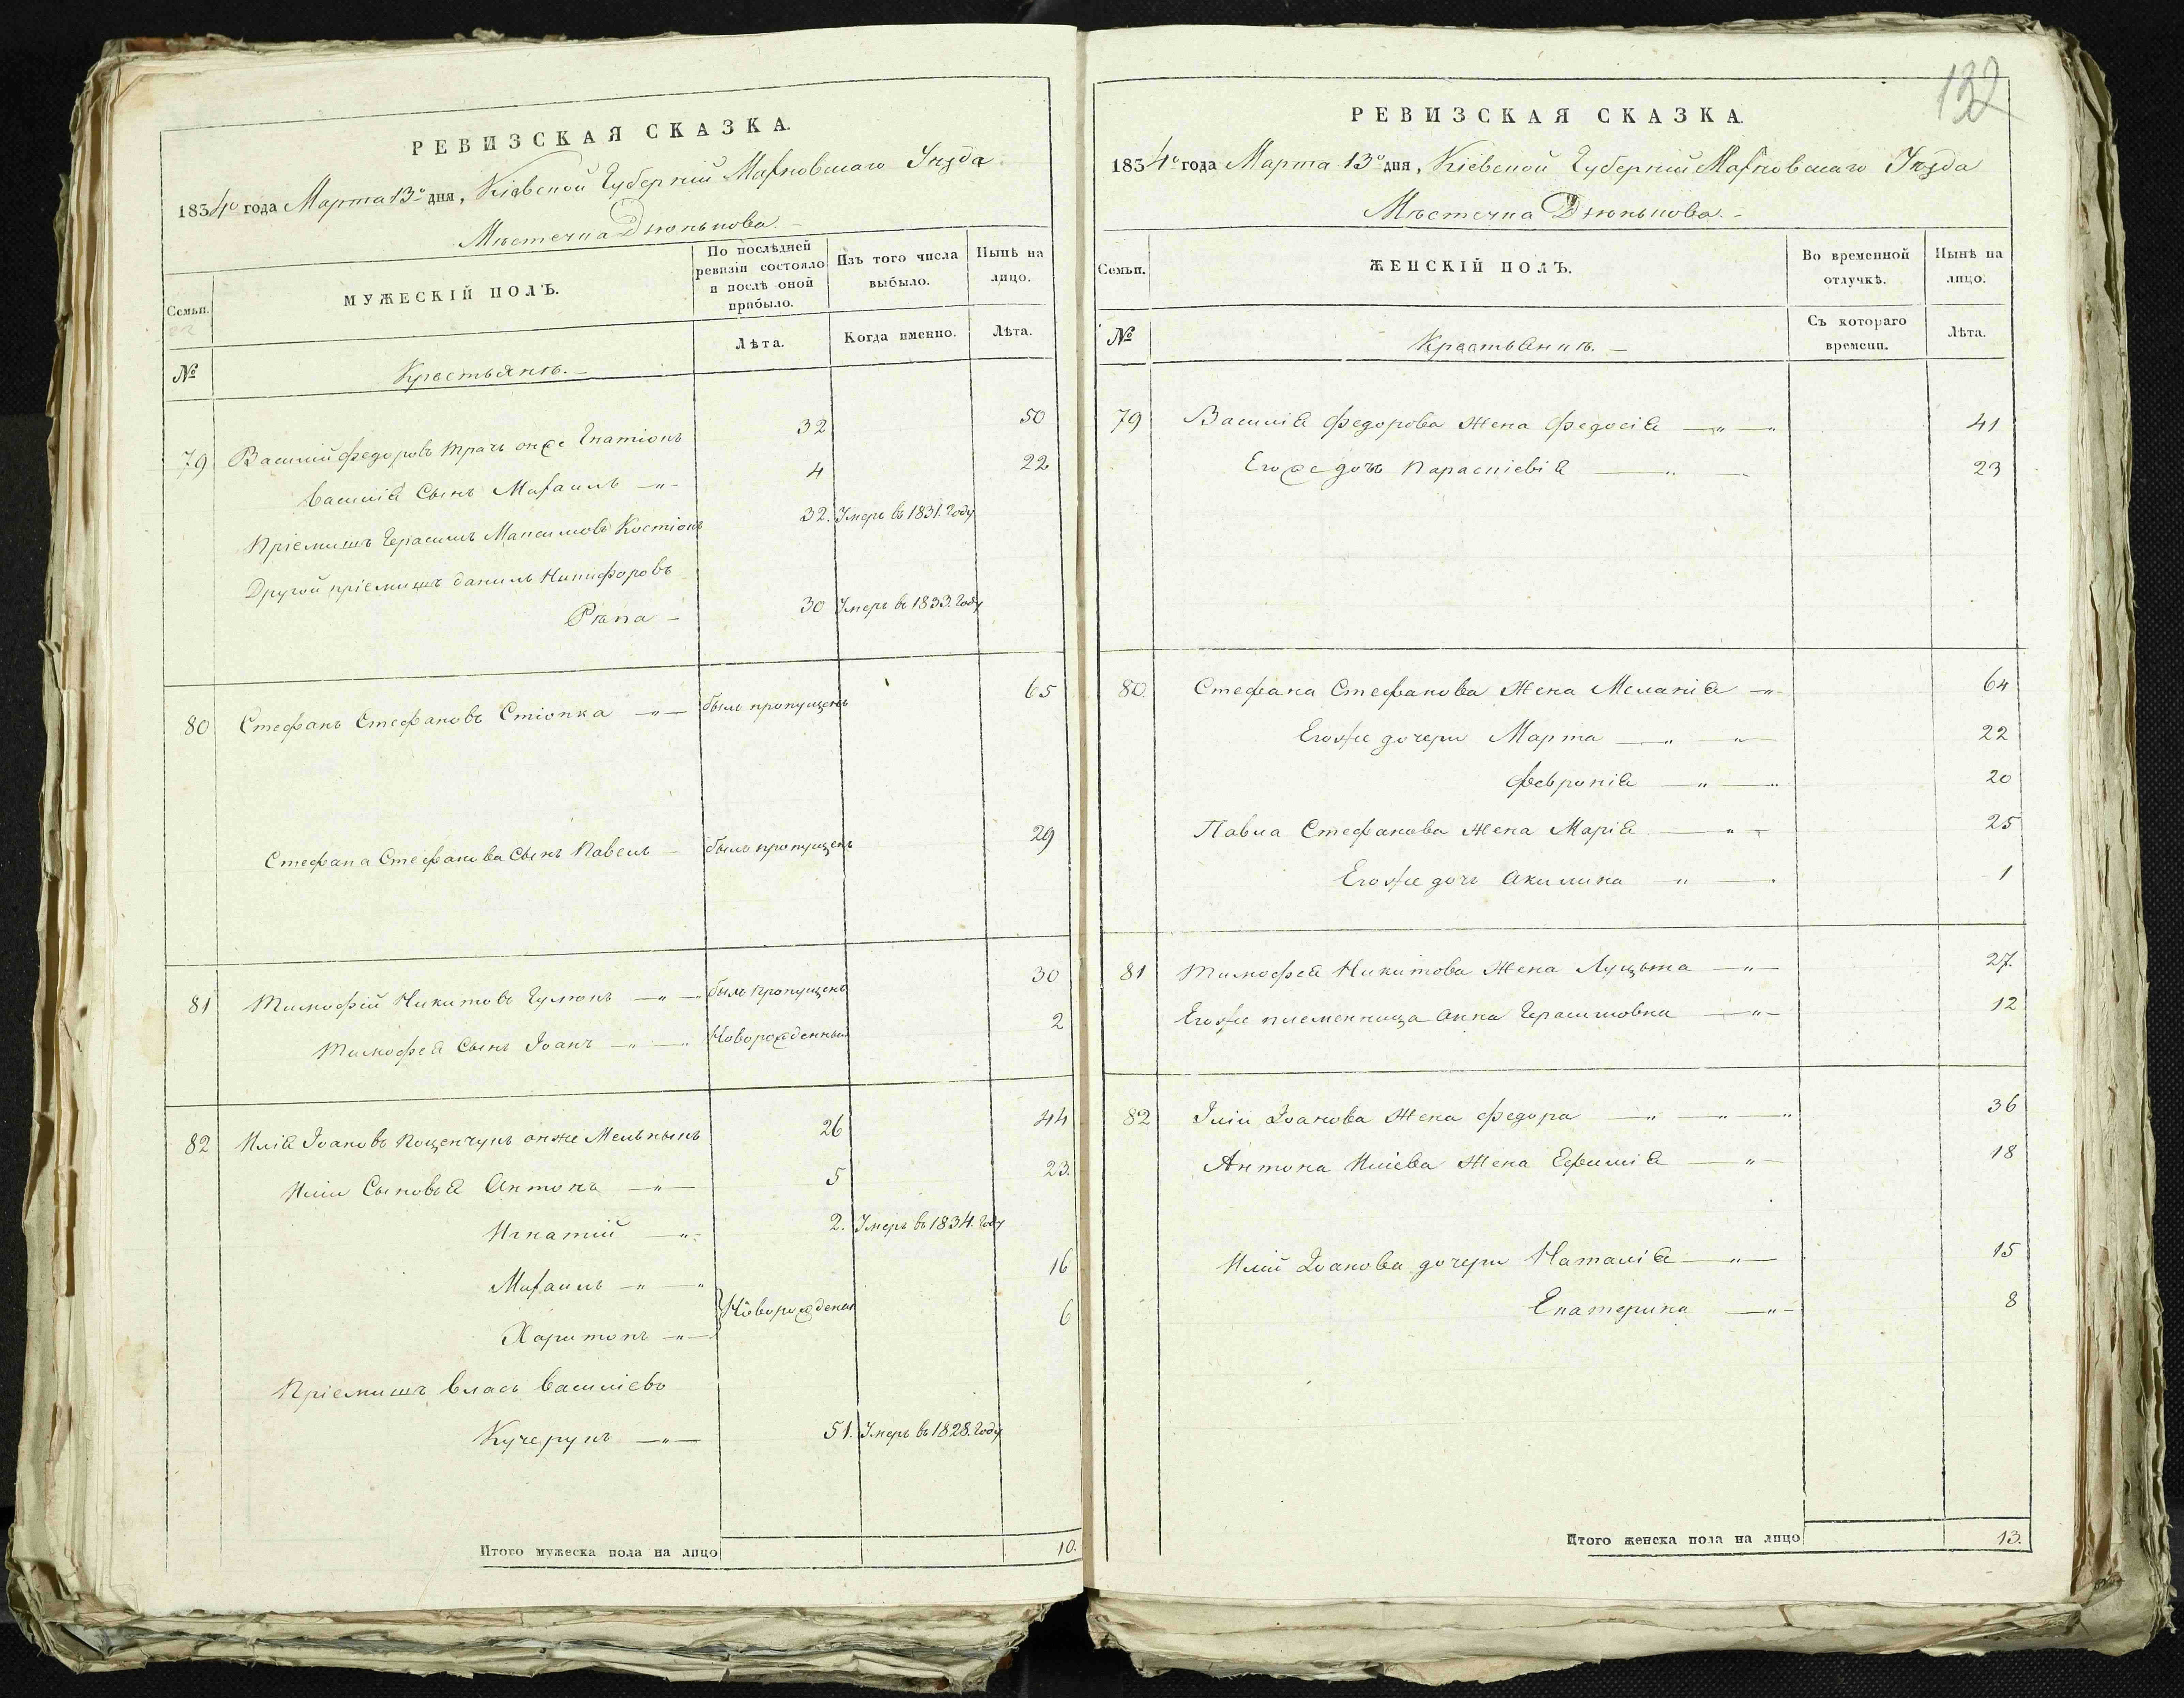 РЕВИЗСКАЯ СКАЗКА.
1834го года Марта 13го дня, Кіевской Губерніи Махновскаго Уѣзда
Мѣстечка Дзюнькова. –
Семьи.
МУЖЕСКІЙ ПОЛЪ.
По послѣдней ревизіи состояло и послѣ оной прибыло.
Изъ того числа выбыло.
Нынѣ на лицо.
№
Крестьянъ. –
Лѣта.
Когда именно.
Лѣта.
79 Василий Федоровъ Трачъ онже Гнатіокъ 32 50
Василія Сынъ Михаилъ –„– 4 22
Пріемишъ Герасимъ Максимовъ Костіокъ 32. Умеръ въ 1831. Году
Другой пріемишъ Данилъ Никифоровъ
Рѣпа – 30 Умеръ въ 1833. Году
80 Стефанъ Стефановъ Стіопка –„– былъ пропущенъ 65
Стефана Стефанова Сынъ Павелъ – былъ пропущенъ 29
81 Тимофей Никитовъ Гумонъ –„– былъ пропущенъ 30
Тимофея Сынъ Іоанъ –„– Новорожденный 2
82 Илія Іоановъ Кощенчукъ онже Мельныкъ 26 44
Иліи Сыновья Антонъ –„– 5 23.
Игнатій –„– 2. Умеръ въ 1834. Году
Михаилъ –„– 16
Новорождены
Харитонъ –„– 6
Пріемишъ Власъ Василіевъ
Кучерукъ –„– 51. Умеръ въ 1828. Году
Итого мужеска пола на лицо 10.
132
РЕВИЗСКАЯ СКАЗКА.
1834го года Марта 13го дня, Кіевской Губерніи Махновскаго Уѣзда
Мѣстечка Дзюнькова. –
Семьи.
ЖЕНСКІЙ ПОЛЪ.
Во временной отлучкѣ.
Нынѣ на лицо.
№
Крестьянкъ. –
Съ котораго времени.
Лѣта.
79 Василія Федорова Жена Федосія –„– 41
Егоже дочъ Параскіевія –„– 23
80. Стефана Стефанова Жена Меланія –„– 64
Егоже дочери Марта –„– 22
Февронія –„– 20
Павла Стефанова Жена Марія –„– 25
Егоже дочь Акилина –„– 1
81 Тимофея Никитова Жена Луцыта –„– 27.
Егоже племенница Анна Герасимовна –„– 12
82 Іліи Іоанова Жена Федора –„– 36
Антона Иліева Жена Ефимія –„– 18
Иліи Іоанова дочери Наталія –„– 15
Екатерина –„– 8
Итого женска пола на лицо 13.